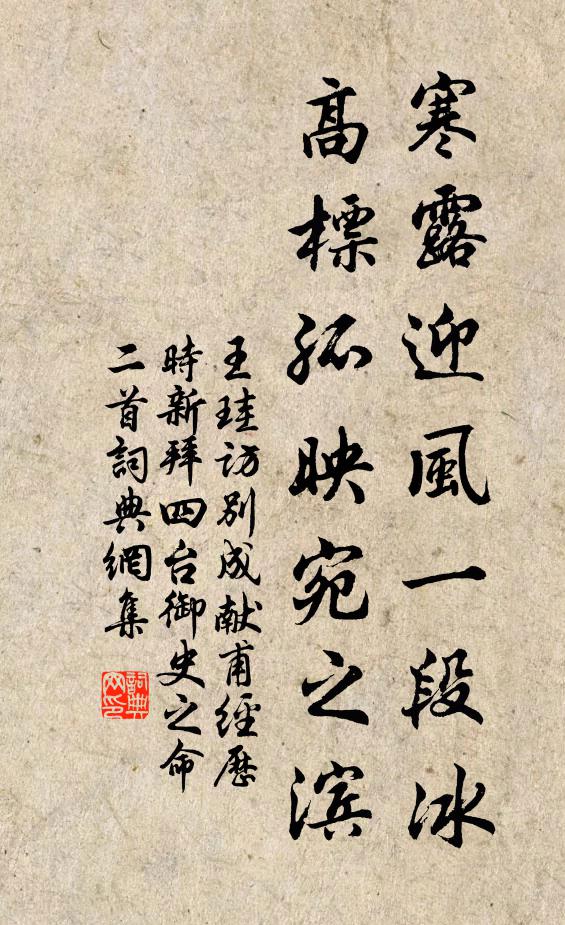 寒露迎風一段冰
高標孤映宛之滨
王珪访别成献甫經歷
時新拜四台御史之命
二首詞典網集
詞典
网印